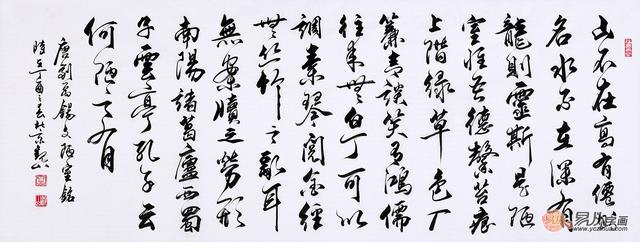 山不在高有僊則
名水不在深有
龍則靈斯是陋
室惟吾德馨苔痕
上階綠草色入
簾青談笑有鴻儒
往來無白丁可以
調素琴閱金經
無絲竹之亂耳
無案牘之勞形
南陽諸葛廬西蜀
子雲亭孔子云
何陋之有
唐劉禹錫文陋室銘
丁酉之春北京
易从字画
www.yczihua.com